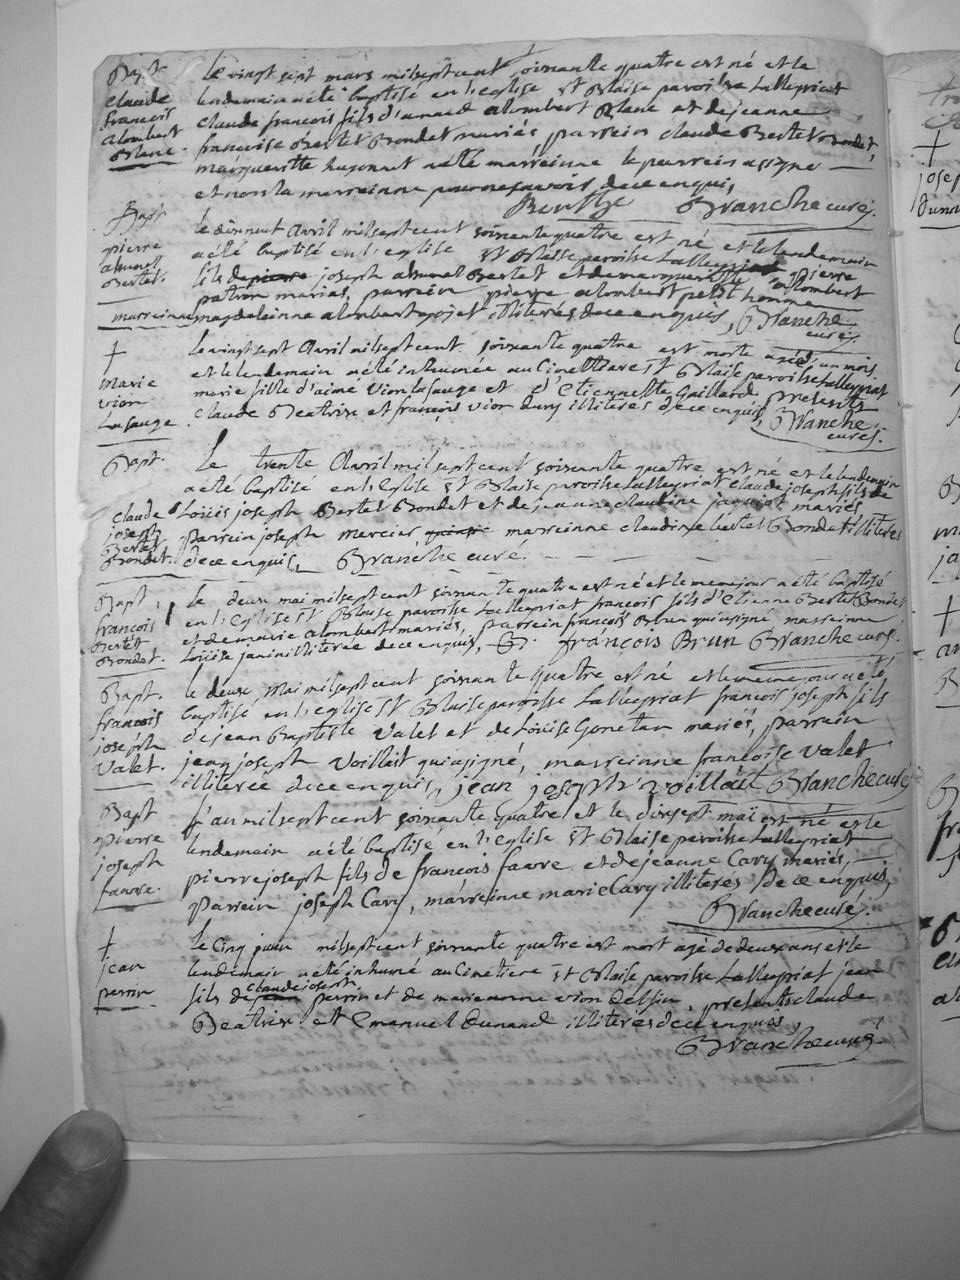 Bapt.
claude
françois
alombert
blanc.
Le vingt sept mars mil sept cent soixante quatre est né et le
lendemain a été baptisé en l'eglise st blaise paroisse Lalleyriat
claude françois fils d'aimé alombert blanc et de jeanne
françoise bertet Bondet mariés parrein claude Bertet Bondet,
margueritte hugonet a été marreinne le parrein a signé
et non la marreinne pour ne savoir de ce enquis,
Branche curé.
Bapt
pierre
bertet.
le dixneuf Avril mil sept cent soixante quatre est né et le lendemain
a été baptisé en l'eglise st Blaise paroisse Lalleyriat pierre
fils de joseph Bertet et de marguerite alombert
patron mariés, parrein pierre alombert petit homme
marreinne magdeleinne alombert gojet illiterés de ce enquis, Branche
curé.
†
Marie
vion
Lasauge.
Le vingt sept Avril mil sept cent soixante quatre est morte un mois
et le lendemain a été inhumée au Cimettiere st Blaise paroisse Lalleyriat
marie fille d'aimé vion lasauge et d'Etiennette Gaillard, presents
claude Beatrix et françois vion illiterés de ce enquis, Branche
curé.
Bapt.
claude
joseph
Bertet
Bondet.
Le trente Avril mil sept cent soixante quatre est né et le lendemain
a été baptisé en l'Eglise st Blaise paroisse Lalleyriat claude joseph fils de
Loüis joseph Bertet Bondet et de jeanne claudine jaquiot mariés
parrein joseph mercier, marreinne claudine bertet Bondet illiterés
de ce enquis, Branche curé.
Bapt.
françois
Bertet
Bondet.
Le deux mai mil sept cent soixante quatre est né et le meme jour a été baptisé
en l'Eglise st Blaise paroisse Lalleyriat françois fils d'Etienne Bertet Bondet
et de marie alombert mariés, parrein françois Brun qui a signé marreinne
Loüise janin illiterée de ce enquis, françois Brun Branche curé.
Bapt.
françois
joseph
valet.
le deux Mai mil sept cent soixante quatre est né et le meme jour a été
baptisé en l'eglise st Blaise paroisse Lalleyriat françois joseph fils
de jean Baptiste valet et de Loüise Gonetan mariés, parrein
jean joseph voillait qui a signé, marreinne françoise valet
illiterée de ce enquis, jean joseph voillait Branche curé
Bapt
pierre
joseph
favre.
L'an mil sept cent soixante quatre et le dixsept maï est né et le
lendemain a été baptisé en l'eglise st Blaise paroisse Lalleyriat
pierre joseph fils de françois favre et de jeanne Cary mariés,
parrein joseph Cary, marreinne marie Cary illiterés de ce enquis,
Branche curé.
†
jean
perrin
le Cinq juin mil sept cent soixante quatre est mort agé de deux ans et le
lendemain a été inhumé au Cimetiere st Blaise paroisse Lalleyriat jean
fils de claude joseph perrin et de marianne vion delfin, presents claude
Beatrix et Emanuel Dunand illiterés de ce enquis,
Branche curé.